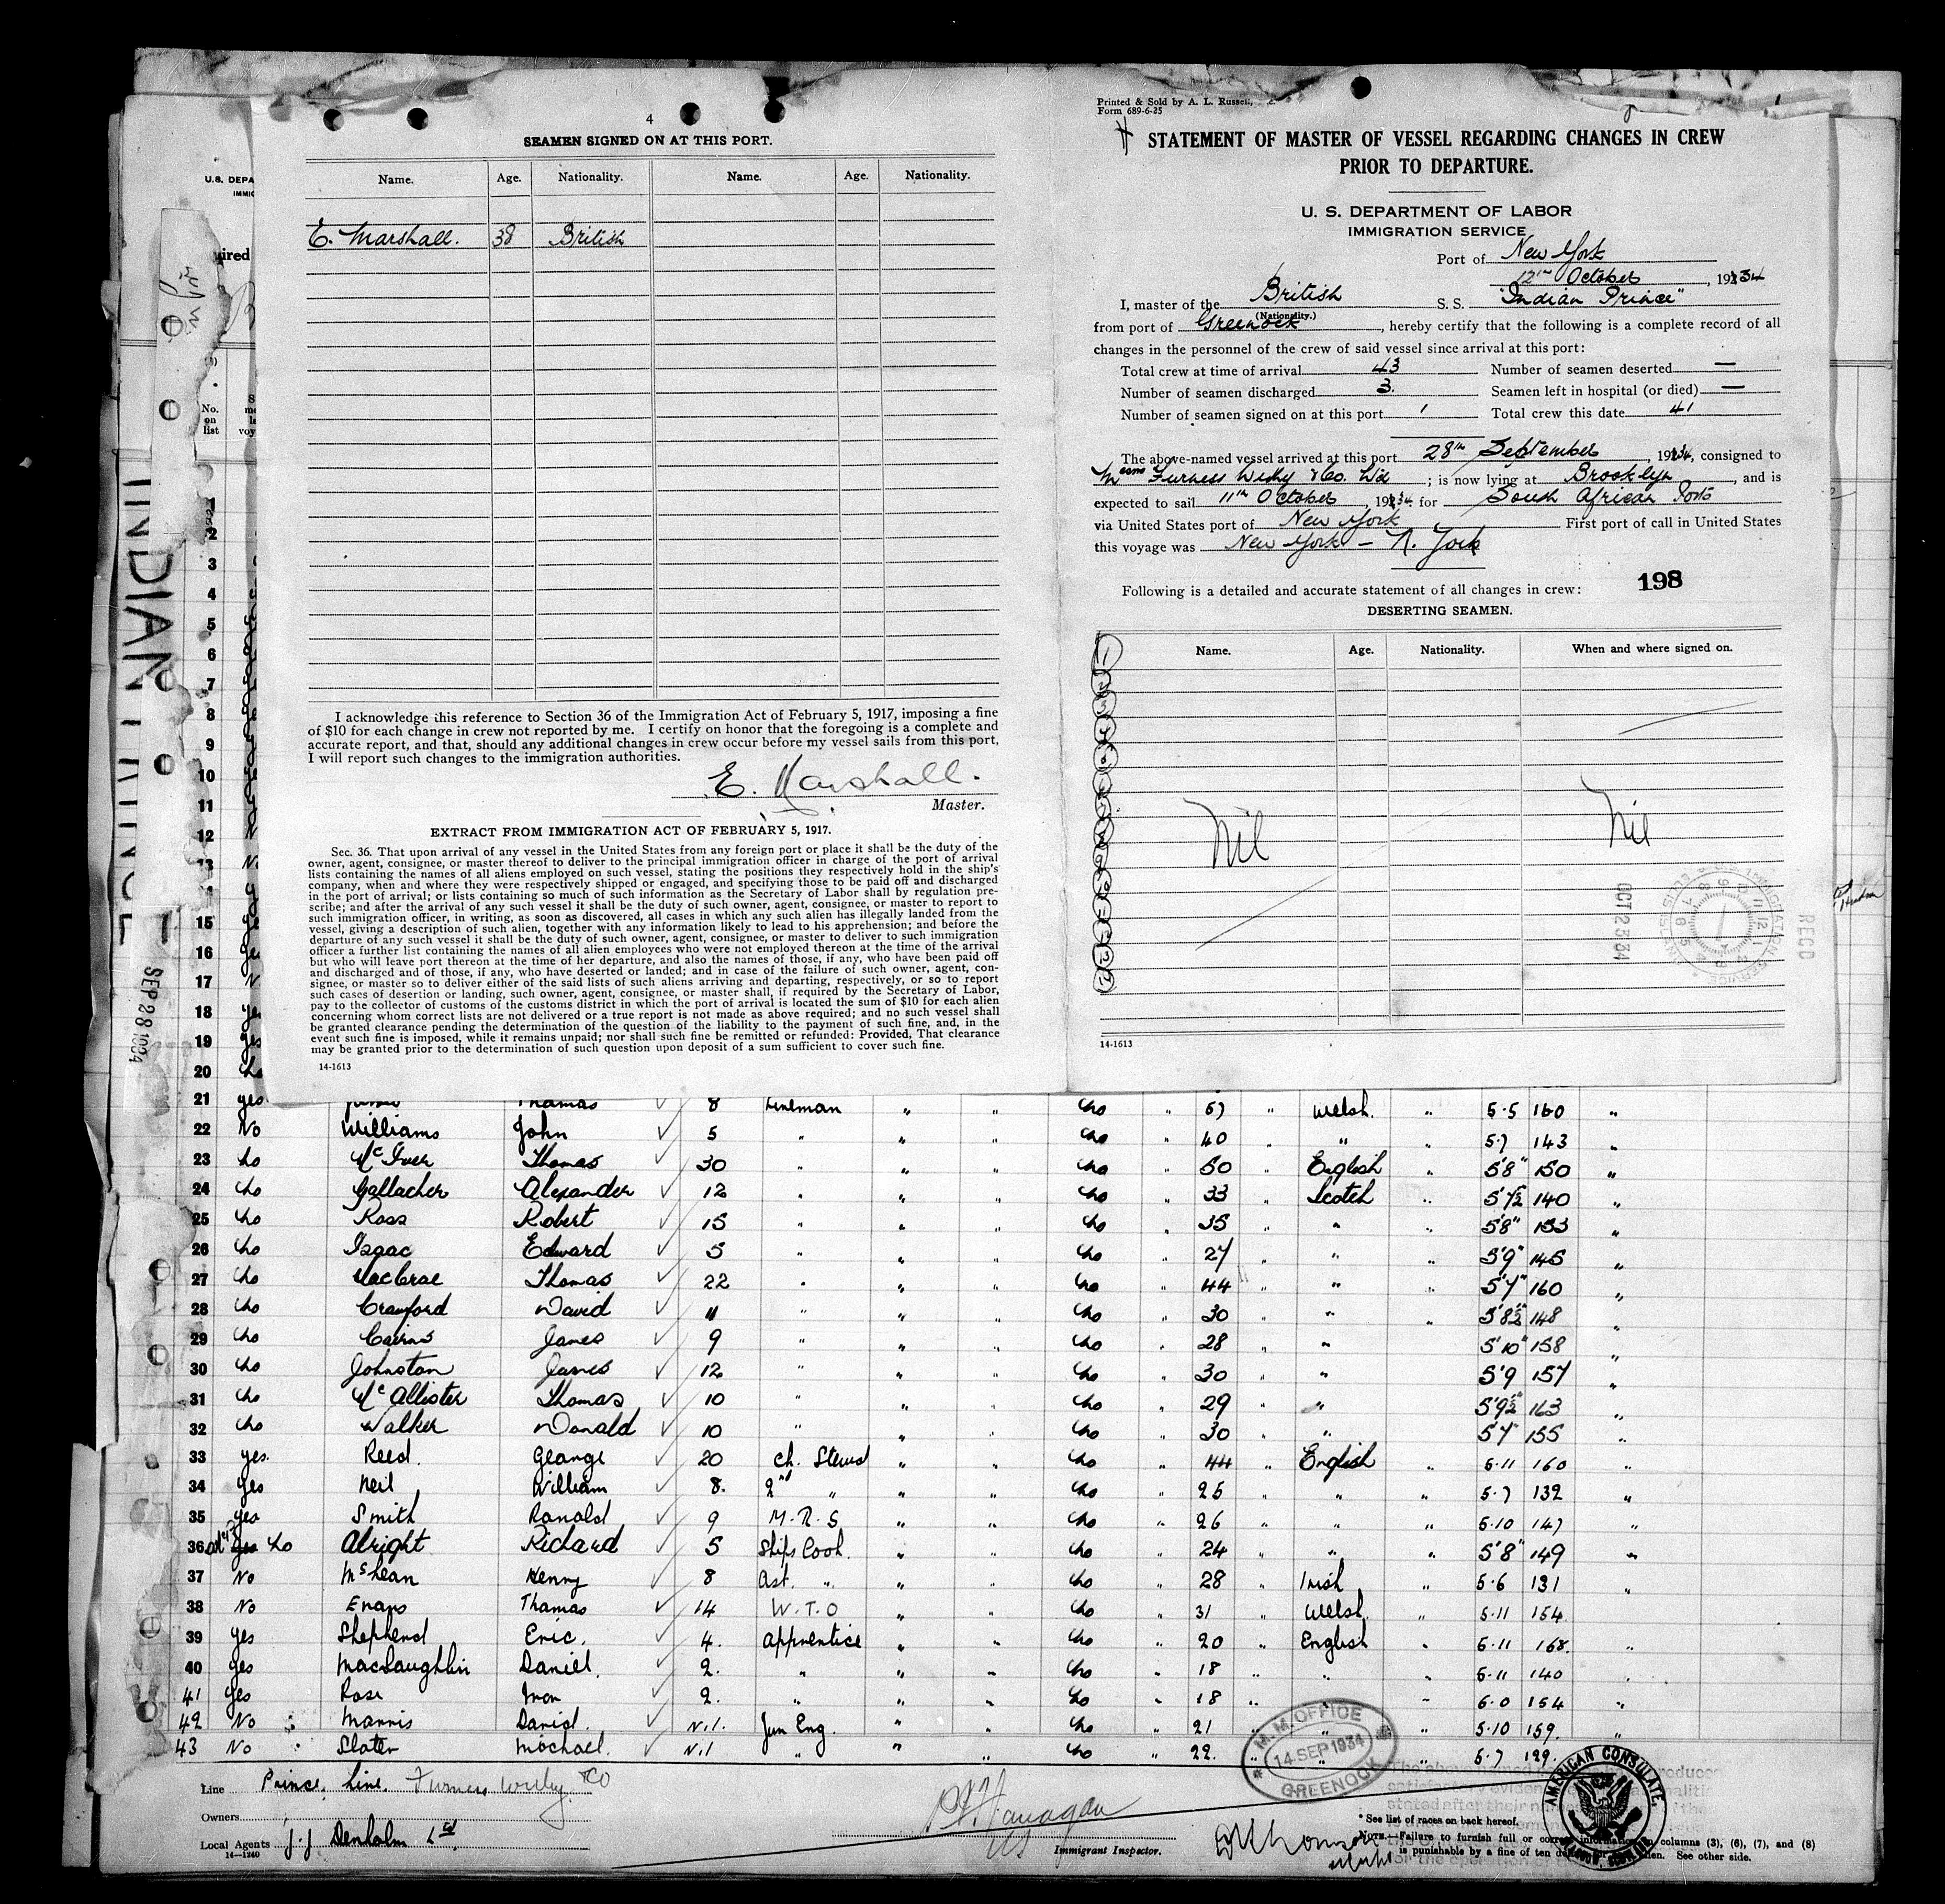 4
SEAMEN SIGNED ON AT THIS PORT.
Name. Age. Nationality. Name. Age. Nationality.
E. Marshall. 38 British
I acknowledge this reference to Section 36 of the Immigration Act of February 5, 1917, imposing a fine
of $10 for each change in crew not reported by me. I certify on honor that the foregoing is a complete and
accurate report, and that, should any additional changes in crew occur before my vessel sails from this port,
I will report such changes to the immigration authorities.
E. Marshall.
Master.
EXTRACT FROM IMMIGRATION ACT OF FEBRUARY 5, 1917.
Sec. 36. That upon arrival of any vessel in the United States from any foreign port or place it shall be the duty of the
owner, agent, consignee, or master thereof to deliver to the principal immigration officer in charge of the port of arrival
lists containing the names of all aliens employed on such vessel, stating the positions they respectively hold in the ship's
company, when and where they were respectively shipped or engaged, and specifying those to be paid off and discharged
in the port of arrival; or lists containing so much of such information as the Secretary of Labor shall by regulation pre-
scribe; and after the arrival of any such vessel it shall be the duty of such owner, agent, consignee, or master to report to
such immigration officer, in writing, as soon as discovered, all cases in which any such alien has illegally landed from the
vessel, giving a description of such alien, together with any information likely to lead to his apprehension; and before the
departure of any such vessel it shall be the duty of such owner, agent, consignee, or master to deliver to such immigration
officer a further list containing the names of all alien employees who were not employed thereon at the time of the arrival
but who will leave port thereon at the time of her departure, and also the names of those, if any, who have been paid off
and discharged and of those, if any, who have deserted or landed; and in case of the failure of such owner, agent, con-
signee, or master so to deliver either of the said lists of such aliens arriving and departing, respectively, or so to report
such cases of desertion or landing, such owner, agent, consignee, or master shall, if required by the Secretary of Labor,
pay to the collector of customs of the customs district in which the port of arrival is located the sum of $10 for each alien
concerning whom correct lists are not delivered or a true report is not made as above required; and no such vessel shall
be granted clearance pending the determination of the question of the liability to the payment of such fine, and, in the
event such fine is imposed, while it remains unpaid; nor shall such fine be remitted or refunded: Provided, That clearance
may be granted prior to the determination of such question upon deposit of a sum sufficient to cover such fine.
14-1613
Printed & Sold by A. L. Russell,
Form 689-6-25
STATEMENT OF MASTER OF VESSEL REGARDING CHANGES IN CREW
PRIOR TO DEPARTURE.
U. S. DEPARTMENT OF LABOR
IMMIGRATION SERVICE
Port of New York
12th October, 1934
I, master of the British S. S. "Indian Prince"
(Nationality.)
from port of Greenock, hereby certify that the following is a complete record of all
changes in the personnel of the crew of said vessel since arrival at this port:
Total crew at time of arrival 43 Number of seamen deserted —
Number of seamen discharged 3. Seamen left in hospital (or died) —
Number of seamen signed on at this port 1 Total crew this date 41
The above-named vessel arrived at this port 28th September, 1934, consigned to
Messrs Furness Withy & Co. Ltd; is now lying at Brooklyn, and is
expected to sail 11th October, 1934. for South African Ports
via United States port of New York First port of call in United States
this voyage was New York - N. York
198
Following is a detailed and accurate statement of all changes in crew:
DESERTING SEAMEN.
Name. Age. Nationality. When and where signed on.
Nil Nil
RECD
OCT 25 34
14-1613
U.S. DEPA
IMMIG
uired
No. on list
INDIAN PRINCE
SEP 28 1934
1
2
3
4
5
6
7
8
9
10
11
12
13
14
15
16
17
18
19
20
21 yes Thomas 8 Fireman " " No " " Welsh. " 5.5 160 "
22 No Williams John 5 " " " No " 40 " " " 5.7 143 "
23 No McIver Thomas 30 " " " No " 50 " English " 5'8" 150 "
24 No Gallacher Alexander 12 " " " No " 33 " Scotch " 5'7½ 140 "
25 No Ross Robert 15 " " " No " 35 " " " 5'8" 153 "
26 No Isaac Edward 5 " " " No " 27 " " " 5'9" 145 "
27 No MacCrae Thomas 22 " " " No " 44 " " " 5'7" 160 "
28 No Crawford David 11 " " " No " 30 " " " 5'8½ 148 "
29 No Cairns James 9 " " " No " 28 " " 5'10" 158 "
30 No Johnston James 12 " " " No " 30 " " 5'9 157 "
31 No McAllister Thomas 10 " " " No " 29 " " 5'9½" 163 "
32 No Walker Donald 10 " " " No " 30 " " 5'7" 155 "
33 yes. Reed. George 20 Ch. Stewd " " No " 44 " English " 5.11 160 "
34 yes Neil William 8. 2nd " " " No " 25 " " " 5.7 132 "
35 yes Smith Ronald 9 M.R.S " " No " 26 " " " 5.10 147 "
36 No Alright Richard 5 Ships Cook. " " No " 24 " " " 5'8" 149 "
37 No Henry 8 Ast. " " " No " 28 " Irish " 5.6 131 "
38 No Evans Thomas 14 W.T.O " " No " 31 " Welsh. " 5.11 154
39 yes Shepherd Eric. 4. apprentice " " No " 20 " English " 5.11 168. "
40 yes MacLaughlin Daniel. 2. " " " No " 18 " " " 5.11 140
41 yes Rose 2. " " " No " 18 " " " 6.0 154 "
42 No Mannis David. Nil. Jun Eng. " " No " 21 " " " 5.10 159. "
43 No Slater Michael. Nil " " " No " 22. " " 5.7 129.
Line Prince Line. Furness Withy & Co
Owners
Local Agents J.J Denholm Ltd
14-1240
Immigrant Inspector.
M.M. OFFICE
14 SEP 1934
GREENOCK
AMERICAN CONSULATE
* See list of races on back hereof.
NOTE.—Failure to furnish full or correct information in columns (3), (6), (7), and (8)
is punishable by a fine of ten dollars for each alien. See other side.